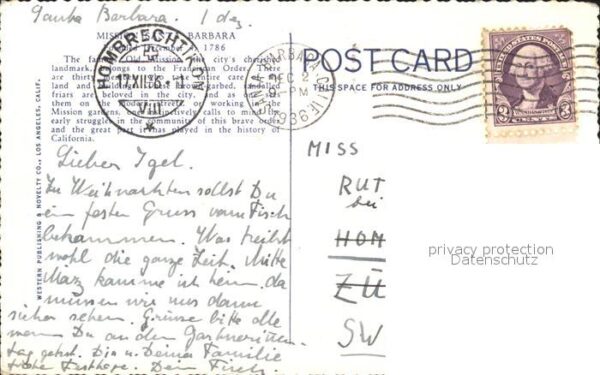 Santa Barbara. 1 dez.
MISSION SANTA BARBARA
Founded December 4, 1786
The famous Old Mission, the city's cherished
landmark, belongs to the Franciscan Order. There
are thirty
and entire care of
land and buildings. Brown garbed, sandalled
friars are believed in the city. And as one sees
them on working in the
Mission gardens, calls to mind the
early struggle in the community of this brave order
and the great part it has played in the history of
California.
HOMBRECHTIKON
12.XII.36
VIII
SANTA BARBARA, CALIF.
DEC 2
PM
1936
POST CARD
THIS SPACE FOR ADDRESS ONLY
UNITED STATES POSTAGE
3 CENTS 3
WESTERN PUBLISHING & NOVELTY CO., LOS ANGELES, CALIF.
Lieber Igel.
Zu Weihnachten sollst Du
ein festen Gruss vom Fisch
bekommen. Was treibst
wohl die ganze Zeit. Mitte
März komme ich heim. da
müssen wir uns dann
sicher sehen. Grüsse bitte alle
wenn Du an den
tag gehst. Dir u Deiner Familie
frohe Festtage. Dein Fisch.
MISS
RUT
bei
HOM
ZÜ
SW
privacy protection
Datenschutz